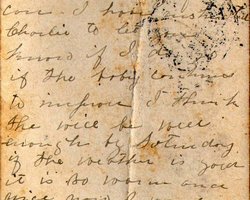 come I
Charlie to let
know if I
if the baby continues
to improve I think
she will be well
enough by Saturday
if the weather is good
it is so warm once